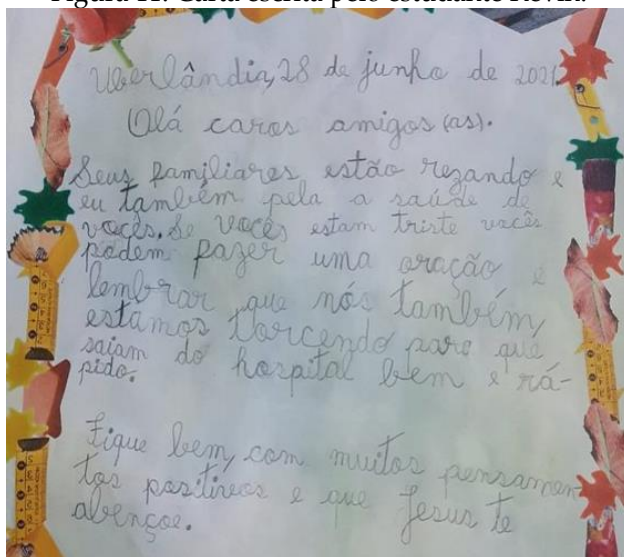 Figura 11: Carta escrita pelo estudante Kevin.
Uberlândia, 28 de junho de 2021.
Olá caros amigos (as).
Seus familiares estão rezando e
eu também pela a saúde de
vocês. Se vocês estam triste vocês
podem fazer uma oração e
lembrar que nós também,
estamos torcendo para que
saiam do hospital bem e rá-
pido.
Fique bem, com muitos pensamen
tos positivos e que Jesus te
abençoe.